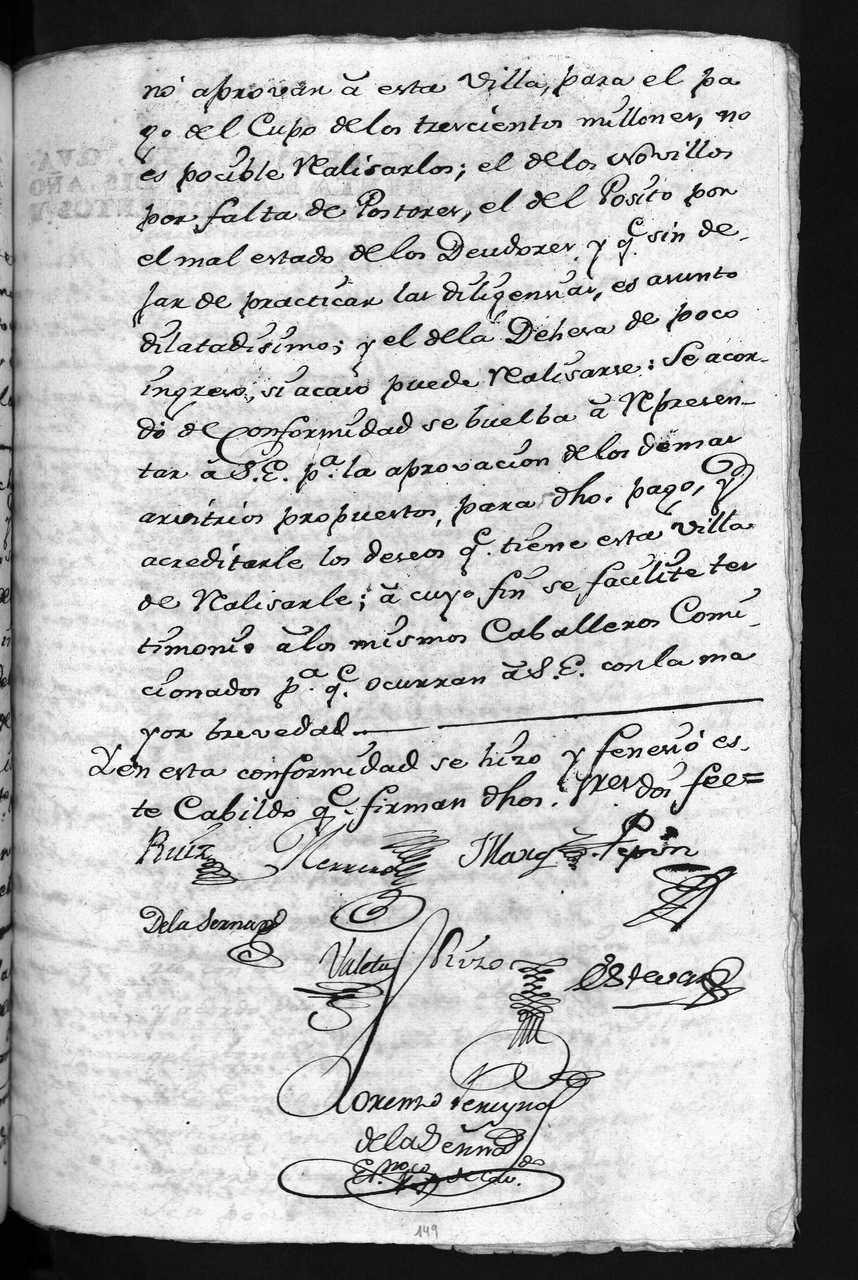 no aprovan â esta Villa, para el pa
go del Cupo delos trescientos millones, no
es pocible Realisarlos; el delos Novillos
por falta de Postores, el del Posito por
el mal estado delos Deudores, y q.e sin de-
jar de practicar las diligencias, es asunto
dilatadisimo; y el dela Dehesa de poco
ingreso, si acaso puede Realisarse: Se acor-
dó de Conformidad se buelba â Represen-
tar â S.E. p.a la aprovacion delos demas
arvitrios propuestos, para dho. pago, y
acreditarle los deseos q.e tiene esta Villa
de Realisarle; â cuyo fin se facilite tes
timonio âlos mismos Caballeros Comi-
cionados p.a q.e ocurran â S.E. conla ma
yor brevedad
Y en esta conformidad se hizo y feneció es-
te Cabildo q.e firman dhos. Sres doi fee=
Ruiz Herrero Marq.z Pepin
Dela Serna
Valetu Rizo Estevan
Lorenzo Pereyra
dela Peña
149